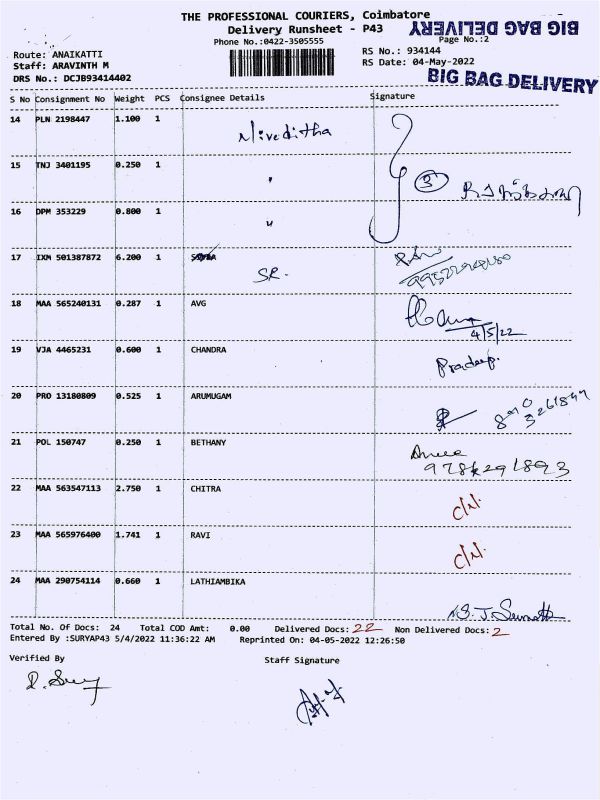 THE PROFESSIONAL COURIERS, Coimbatore
Delivery Runsheet - P43
BIG BAG DELIVERY
Phone No.:0422-3505555
Page No.:2
Route: ANAIKATTI
RS No.: 934144
Staff: ARAVINTH M
RS Date: 04-May-2022
DRS No.: DCJB93414402
BIG BAG DELIVERY
S No Consignment No Weight PCS Consignee Details Signature
14 PLN 2198447 1.100 1 Niveditha
15 TNJ 3401195 0.250 1 " 3
16 DPM 353229 0.800 1 "
17 IXM 501387872 6.200 1
SR.
18 MAA 565240131 0.287 1 AVG
4/5/22
19 VJA 4465231 0.600 1 CHANDRA
Pradeep.
20 PRO 13180809 0.525 1 ARUMUGAM
21 POL 150747 0.250 1 BETHANY
22 MAA 563547113 2.750 1 CHITRA
C/N.
23 MAA 565976400 1.741 1 RAVI
C/N.
24 MAA 290754114 0.660 1 LATHIAMBIKA
Total No. Of Docs: 24 Total COD Amt: 0.00 Delivered Docs: 22 Non Delivered Docs: 2
Entered By :SURYAP43 5/4/2022 11:36:22 AM Reprinted On: 04-05-2022 12:26:50
Verified By
Staff Signature